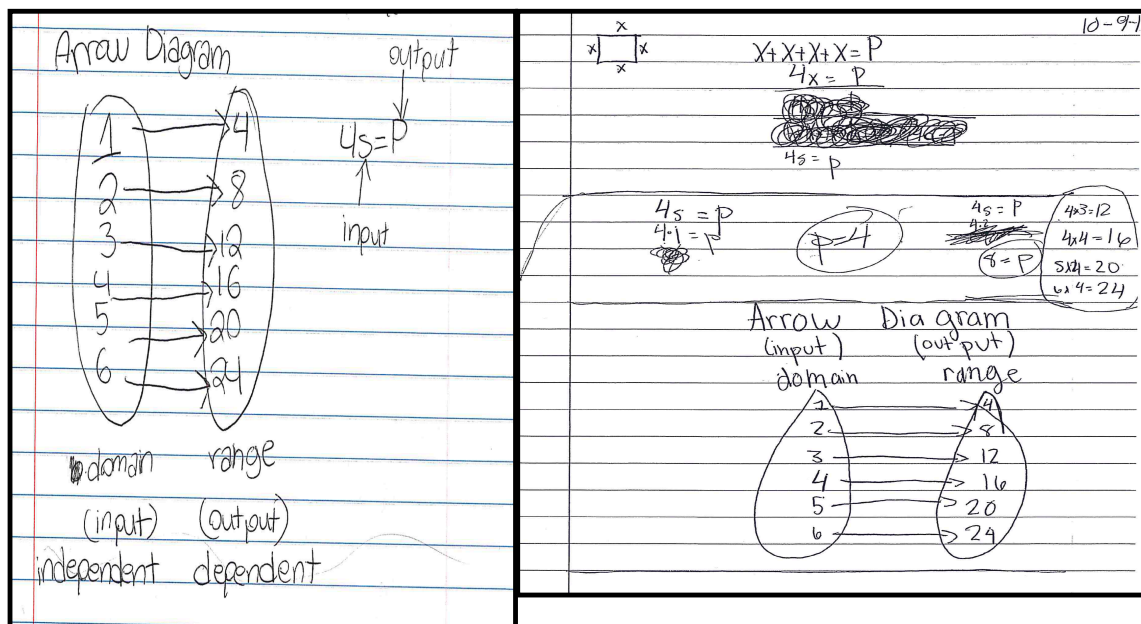 Arrow Diagram
output
1 4
4s=P
2 8
input
3 12
4 16
5 20
6 24
domain range
(input) (output)
independent dependent
10-9-1
x
x x
x
x+x+x+x=P
4x = P
4s = P
4s = P
4·1 = P
p=4
4s = P
4·2
8=P
4x3=12
4x4=16
5x4=20
6x4=24
Arrow Diagram
(input) (output)
domain range
1 4
2 8
3 12
4 16
5 20
6 24